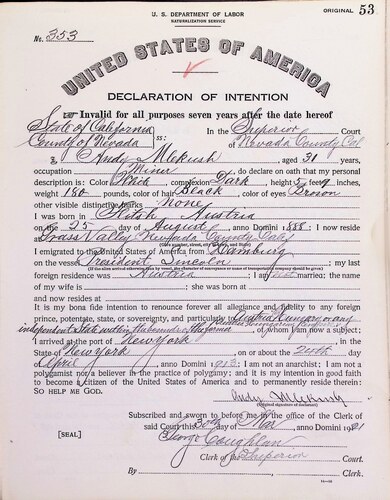 U. S. DEPARTMENT OF LABOR
NATURALIZATION SERVICE
ORIGINAL 53
No. 353
UNITED STATES OF AMERICA
DECLARATION OF INTENTION
Invalid for all purposes seven years after the date hereof
State of California
County of Nevada
ss:
In the Superior Court
of Nevada County Cal
I, Andy Mlekush, aged 31 years,
occupation Miner, do declare on oath that my personal
description is: Color White, complexion Dark, height 5 feet 9 inches,
weight 180 pounds, color of hair Black, color of eyes Brown
other visible distinctive marks None
I was born in Austria
on the 25 day of August, anno Domini 1888; I now reside
at Grass Valley Nevada County Calif
(Give number, street, city or town, and State.)
I emigrated to the United States of America from Hamburg
on the vessel President Lincoln; my last
(If the alien arrived otherwise than by vessel, the character of conveyance or name of transportation company should be given.)
foreign residence was Austria; I am not married; the name
of my wife is; she was born at
and now resides at
It is my bona fide intention to renounce forever all allegiance and fidelity to any foreign
prince, potentate, state, or sovereignty, and particularly to Austria Hungary or any
independent State within the bounds of the former
Austro Hungarian, of whom I am now a subject;
I arrived at the port of New York, in the
State of New York, on or about the day
of April, anno Domini 1913; I am not an anarchist; I am not a
polygamist nor a believer in the practice of polygamy; and it is my intention in good faith
to become a citizen of the United States of America and to permanently reside therein:
SO HELP ME GOD.
Andy Mlekush
(Original signature of declarant)
Subscribed and sworn to before me in the office of the Clerk of
said Court this 30th day of, anno Domini 1921
[SEAL]
George Coughlan
Clerk of the Superior Court.
By, Clerk.